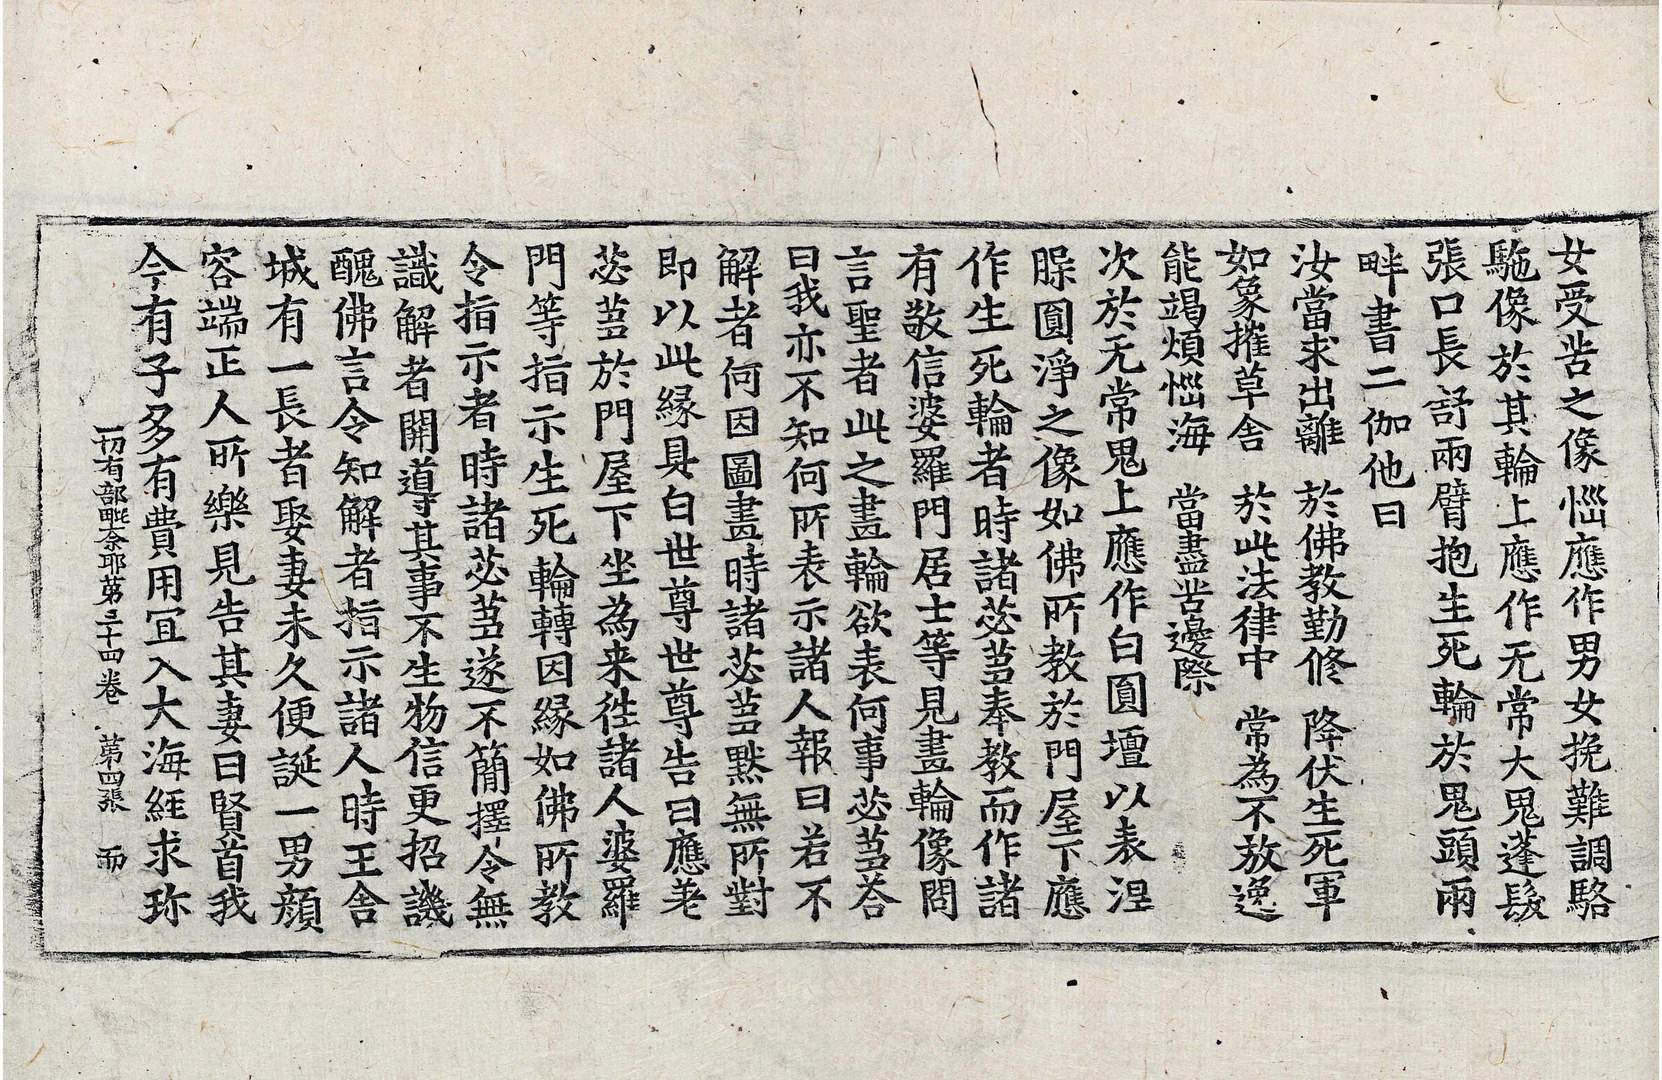 女受苦之像惱應作男女挽難調駱
駞像於其輪上應作无常大鬼蓬髮
張口長舒兩臂抱生死輪於鬼頭兩
畔書二伽他曰
汝當求出離　於佛教勤修　降伏生死軍
如象摧草舍　於此法律中　常為不放逸
能竭煩惱海　當盡苦邊際
次於无常鬼上應作白圓壇以表涅
槃圓淨之像如佛所教於門屋下應
作生死輪者時諸苾芻奉教而作諸
有敬信婆羅門居士等見畫輪像問
言聖者此之畫輪欲表何事苾芻荅
曰我亦不知何所表示諸人報曰若不
解者何因圖畫時諸苾芻默無所對
即以此緣具白世尊世尊告曰應差
苾芻於門屋下坐為来往諸人婆羅
門等指示生死輪轉因緣如佛所教
令指示者時諸苾芻遂不簡擇令無
識解者開導其事不生物信更招譏
醜佛言令知解者指示諸人時王舍
城有一長者娶妻未久便誕一男顏
容端正人所樂見告其妻曰賢首我
今有子多有費用冝入大海經求珎
一切有部毗奈耶第三十四卷　第四張　而